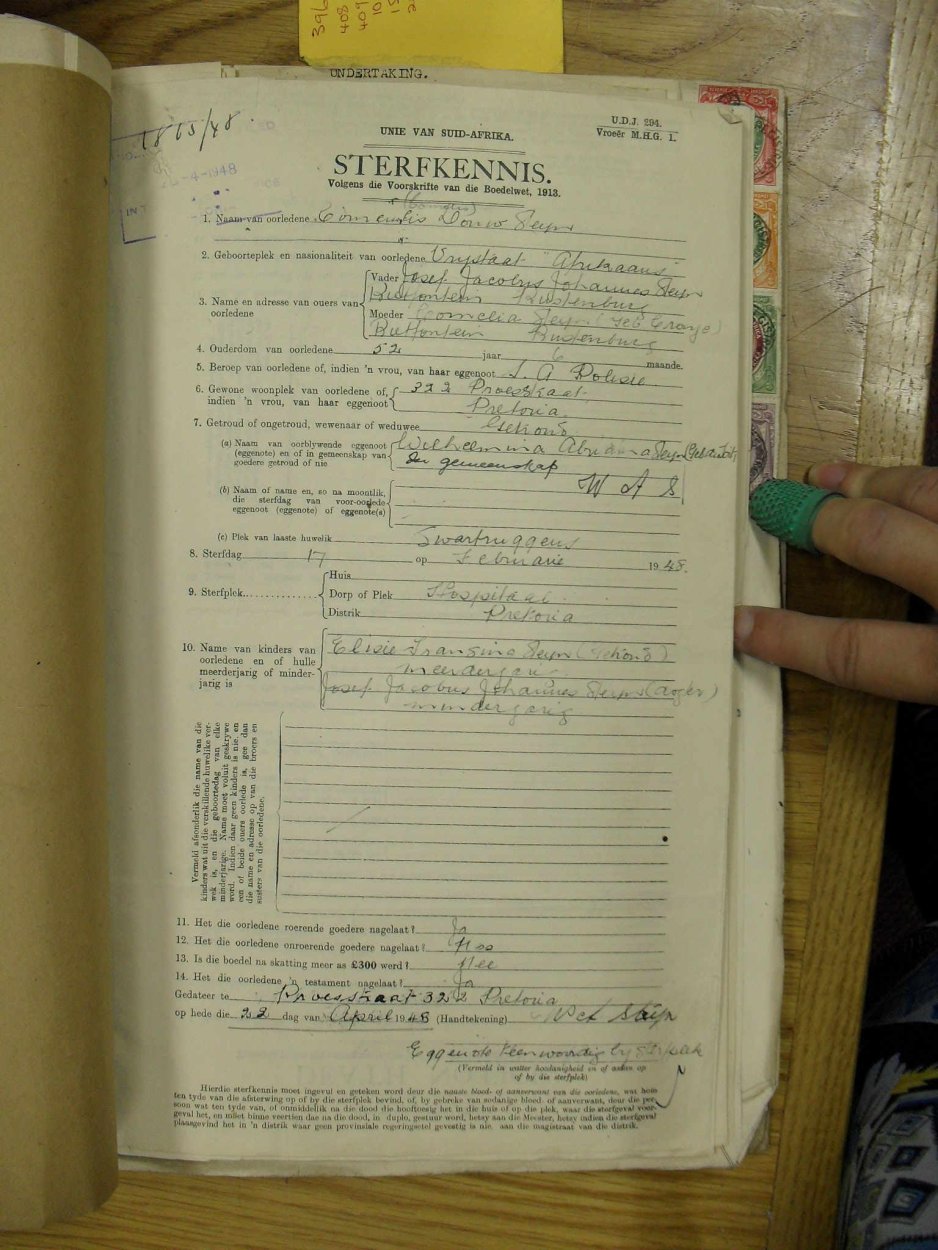 396
408
409
UNDERTAKING.
1803/48
-4-1948
IN T
U.D.J. 294.
Vroeër M.H.G. 1.
UNIE VAN SUID-AFRIKA.
STERFKENNIS.
Volgens die Voorskrifte van die Boedelwet, 1913.
(Cornelis)
1. Naam van oorledene Cornelis Douw Steyn
2. Geboorteplek en nasionaliteit van oorledene Vrystaat "Afrikaans"
3. Name en adresse van ouers van oorledene
Vader Josef Jacobus Johannes Steyn
Rietfontein Rustenburg
Moeder Cornelia Steyn (Geb Cronje)
Rietfontein Rustenburg
4. Ouderdom van oorledene 52 jaar 6 maande.
5. Beroep van oorledene of, indien 'n vrou, van haar eggenoot S. A Polisie
6. Gewone woonplek van oorledene of, 322 Proesstraat
indien 'n vrou, van haar eggenoot Pretoria
7. Getroud of ongetroud, wewenaar of weduwee Getroud
(a) Naam van oorblywende eggenoot (eggenote) en of in gemeenskap van goedere getroud of nie
Wilhelmina Abriana Steyn
In gemeenskap
W A S
(b) Naam of name en, so na moontlik, die sterfdag van voor-oorlede eggenoot (eggenote) of eggenote(s)
(c) Plek van laaste huwelik Swartruggens
8. Sterfdag 17 op Februarie 1948.
9. Sterfplek
Huis
Dorp of Plek Hospitaal
Distrik Pretoria
10. Name van kinders van oorledene en of hulle meerderjarig of minderjarig is
Elisie Fransina Steyn (Getroud)
meerderjarig
Josef Jacobus Johannes Steyn
minderjarig
Vermeld afsonderlik die name van die
kinders wat uit die verskillende huwelike verwek is, en die geboortedag van elke
minderjarige. Name moet voluit geskrywe
word. Indien daar geen kinders is nie, en
een of beide ouers oorlede is, gee dan
die name en adresse op van die broers en
susters van die oorledene.
11. Het die oorledene roerende goedere nagelaat? Ja
12. Het die oorledene onroerende goedere nagelaat? Nee
13. Is die boedel na skatting meer as £300 werd? Nee
14. Het die oorledene 'n testament nagelaat? Ja
Gedateer te Proesstraat 322 Pretoria
op hede die 22 dag van April 1948 (Handtekening) Steyn
Eggenote teenwoordig by sterfplek
(Vermeld in watter hoedanigheid en of anders op
of by die sterfplek)
Hierdie sterfkennis moet ingevul en geteken word deur die naaste bloed- of aanverwant van die oorledene, wat hom
ten tyde van die afsterwing op of by die sterfplek bevind, of, by gebreke van sodanige bloed- of aanverwant, deur die persoon wat ten tyde van, of onmiddellik na die dood die hooftoesig het in die huis of op die plek, waar die sterfgeval voorgeval het, en moet binne veertien dae na die dood, in duplo, gestuur word, hetsy aan die Meester, hetsy indien die sterfgeval
plaasgevind het in 'n distrik waar geen provinsiale regeringsetel gevestig is nie, aan die magistraat van die distrik.